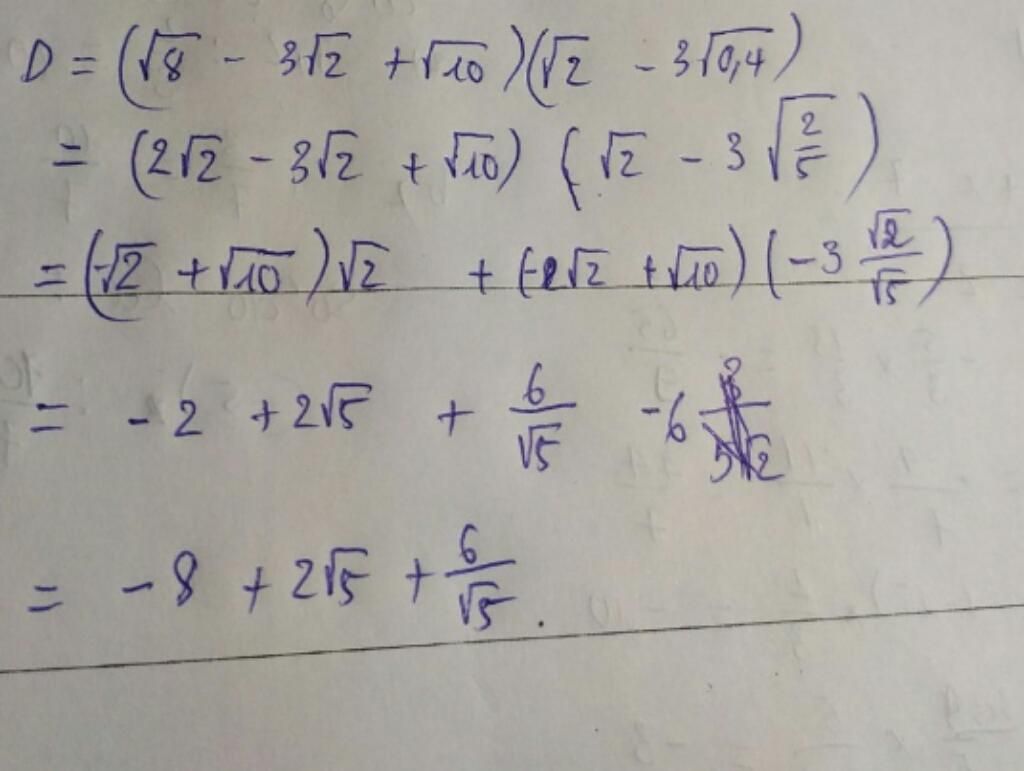 D = (√8 - 3√2 + √10)(√2 - 3√0,4)
= (2√2 - 3√2 + √10) (√2 - 3√(2/5))
= (-√2 + √10)√2 + (-√2 + √10)(-3 √2/√5)
= -2 + 2√5 + 6/√5 -6
= -8 + 2√5 + 6/√5.